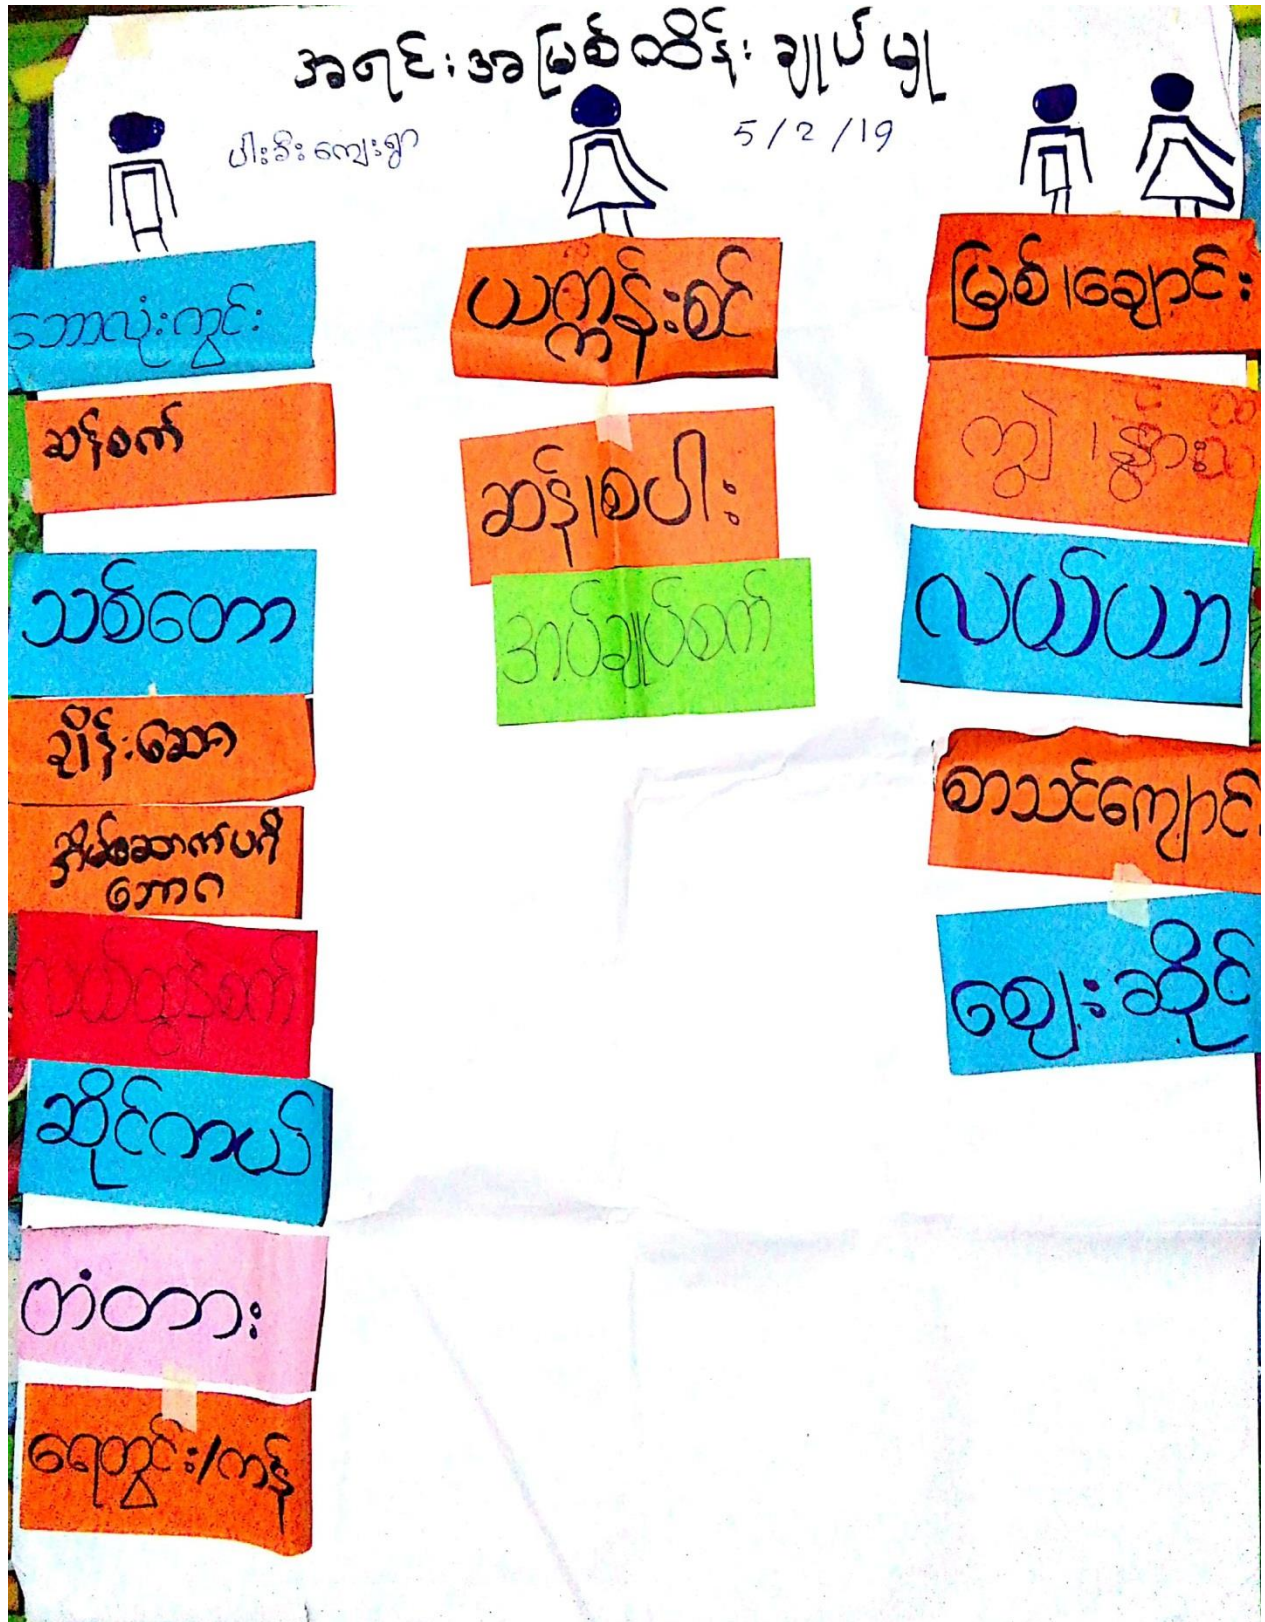 အရင်းအမြစ်ထိန်းချုပ်မှု
ပါးခီးကျေးရွာ
5/2/19
ဘောလုံးကွင်း
ဆန်စက်
သစ်တော
ချိန်းဆော
အိမ်ဆောက်ပရိ
ဘောဂ
လယ်ထွန်စက်
ဆိုင်ကယ်
တံတား
ရေတွင်း/ကန်
ယက္ကန်းစင်
ဆန်/စပါး
အပ်ချုပ်စက်
မြစ်/ချောင်း
ကျွဲ/နွား
လယ်ယာ
စာသင်ကျောင်း
ဈေးဆိုင်